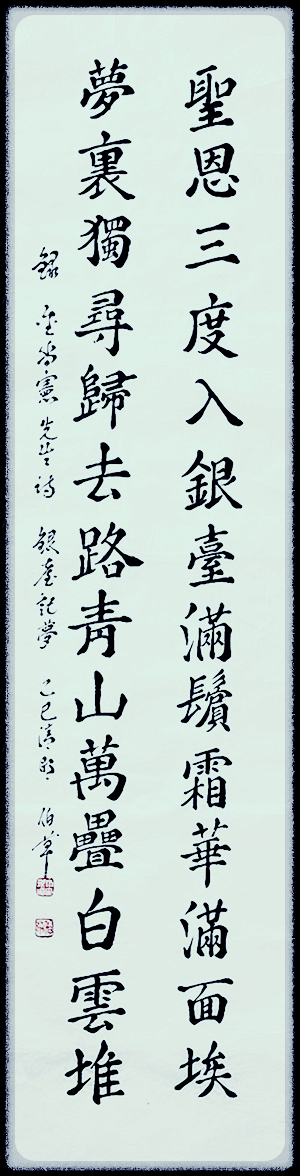 聖恩三度入銀臺滿鬢霜華滿面埃
夢裏獨尋歸去路青山萬疊白雲堆
錄 金尚憲先生詩 銀臺記夢 乙巳清明 伯草